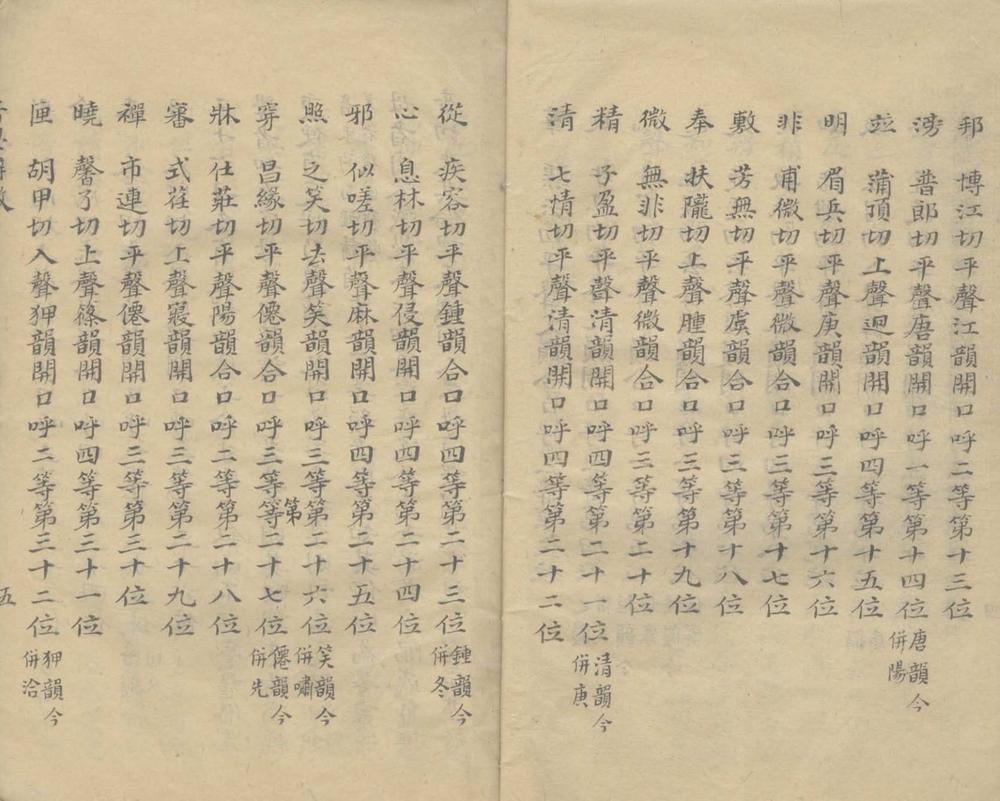 邦 博江切平聲江韻開口呼二等第十三位
滂 普郎切平聲唐韻開口呼一等第十四位唐韻今併陽
並 蒲頂切上聲迥韻開口呼四等第十五位
明 眉兵切平聲庚韻開口呼三等第十六位
非 甫微切平聲微韻合口呼三等第十七位
敷 芳無切平聲虞韻合口呼三等第十八位
奉 扶隴切上聲腫韻合口呼三等第十九位
微 無非切平聲微韻合口呼三等第二十位
精 子盈切平聲清韻開口呼四等第二十一位清韻今併庚
清 七情切平聲清韻開口呼四等第二十二位
從 疾容切平聲鍾韻合口呼四等第二十三位鍾韻今併冬
心 息林切平聲侵韻開口呼四等第二十四位
邪 似嗟切平聲麻韻開口呼四等第二十五位
照 之笑切去聲笑韻開口呼三等第二十六位笑韻今併嘯
穿 昌緣切平聲僊韻合口呼三等第二十七位僊韻今併先
牀 仕莊切平聲陽韻合口呼二等第二十八位
審 式荏切上聲寢韻開口呼三等第二十九位
禪 市連切平聲僊韻開口呼三等第三十位
曉 馨了切上聲篠韻開口呼四等第三十一位
匣 胡甲切入聲狎韻開口呼二等第三十二位狎韻今併洽
五